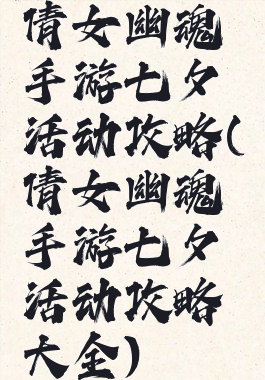 倩女幽魂
手游七夕
活动攻略(
倩女幽魂
手游七夕
活动攻略
大全)